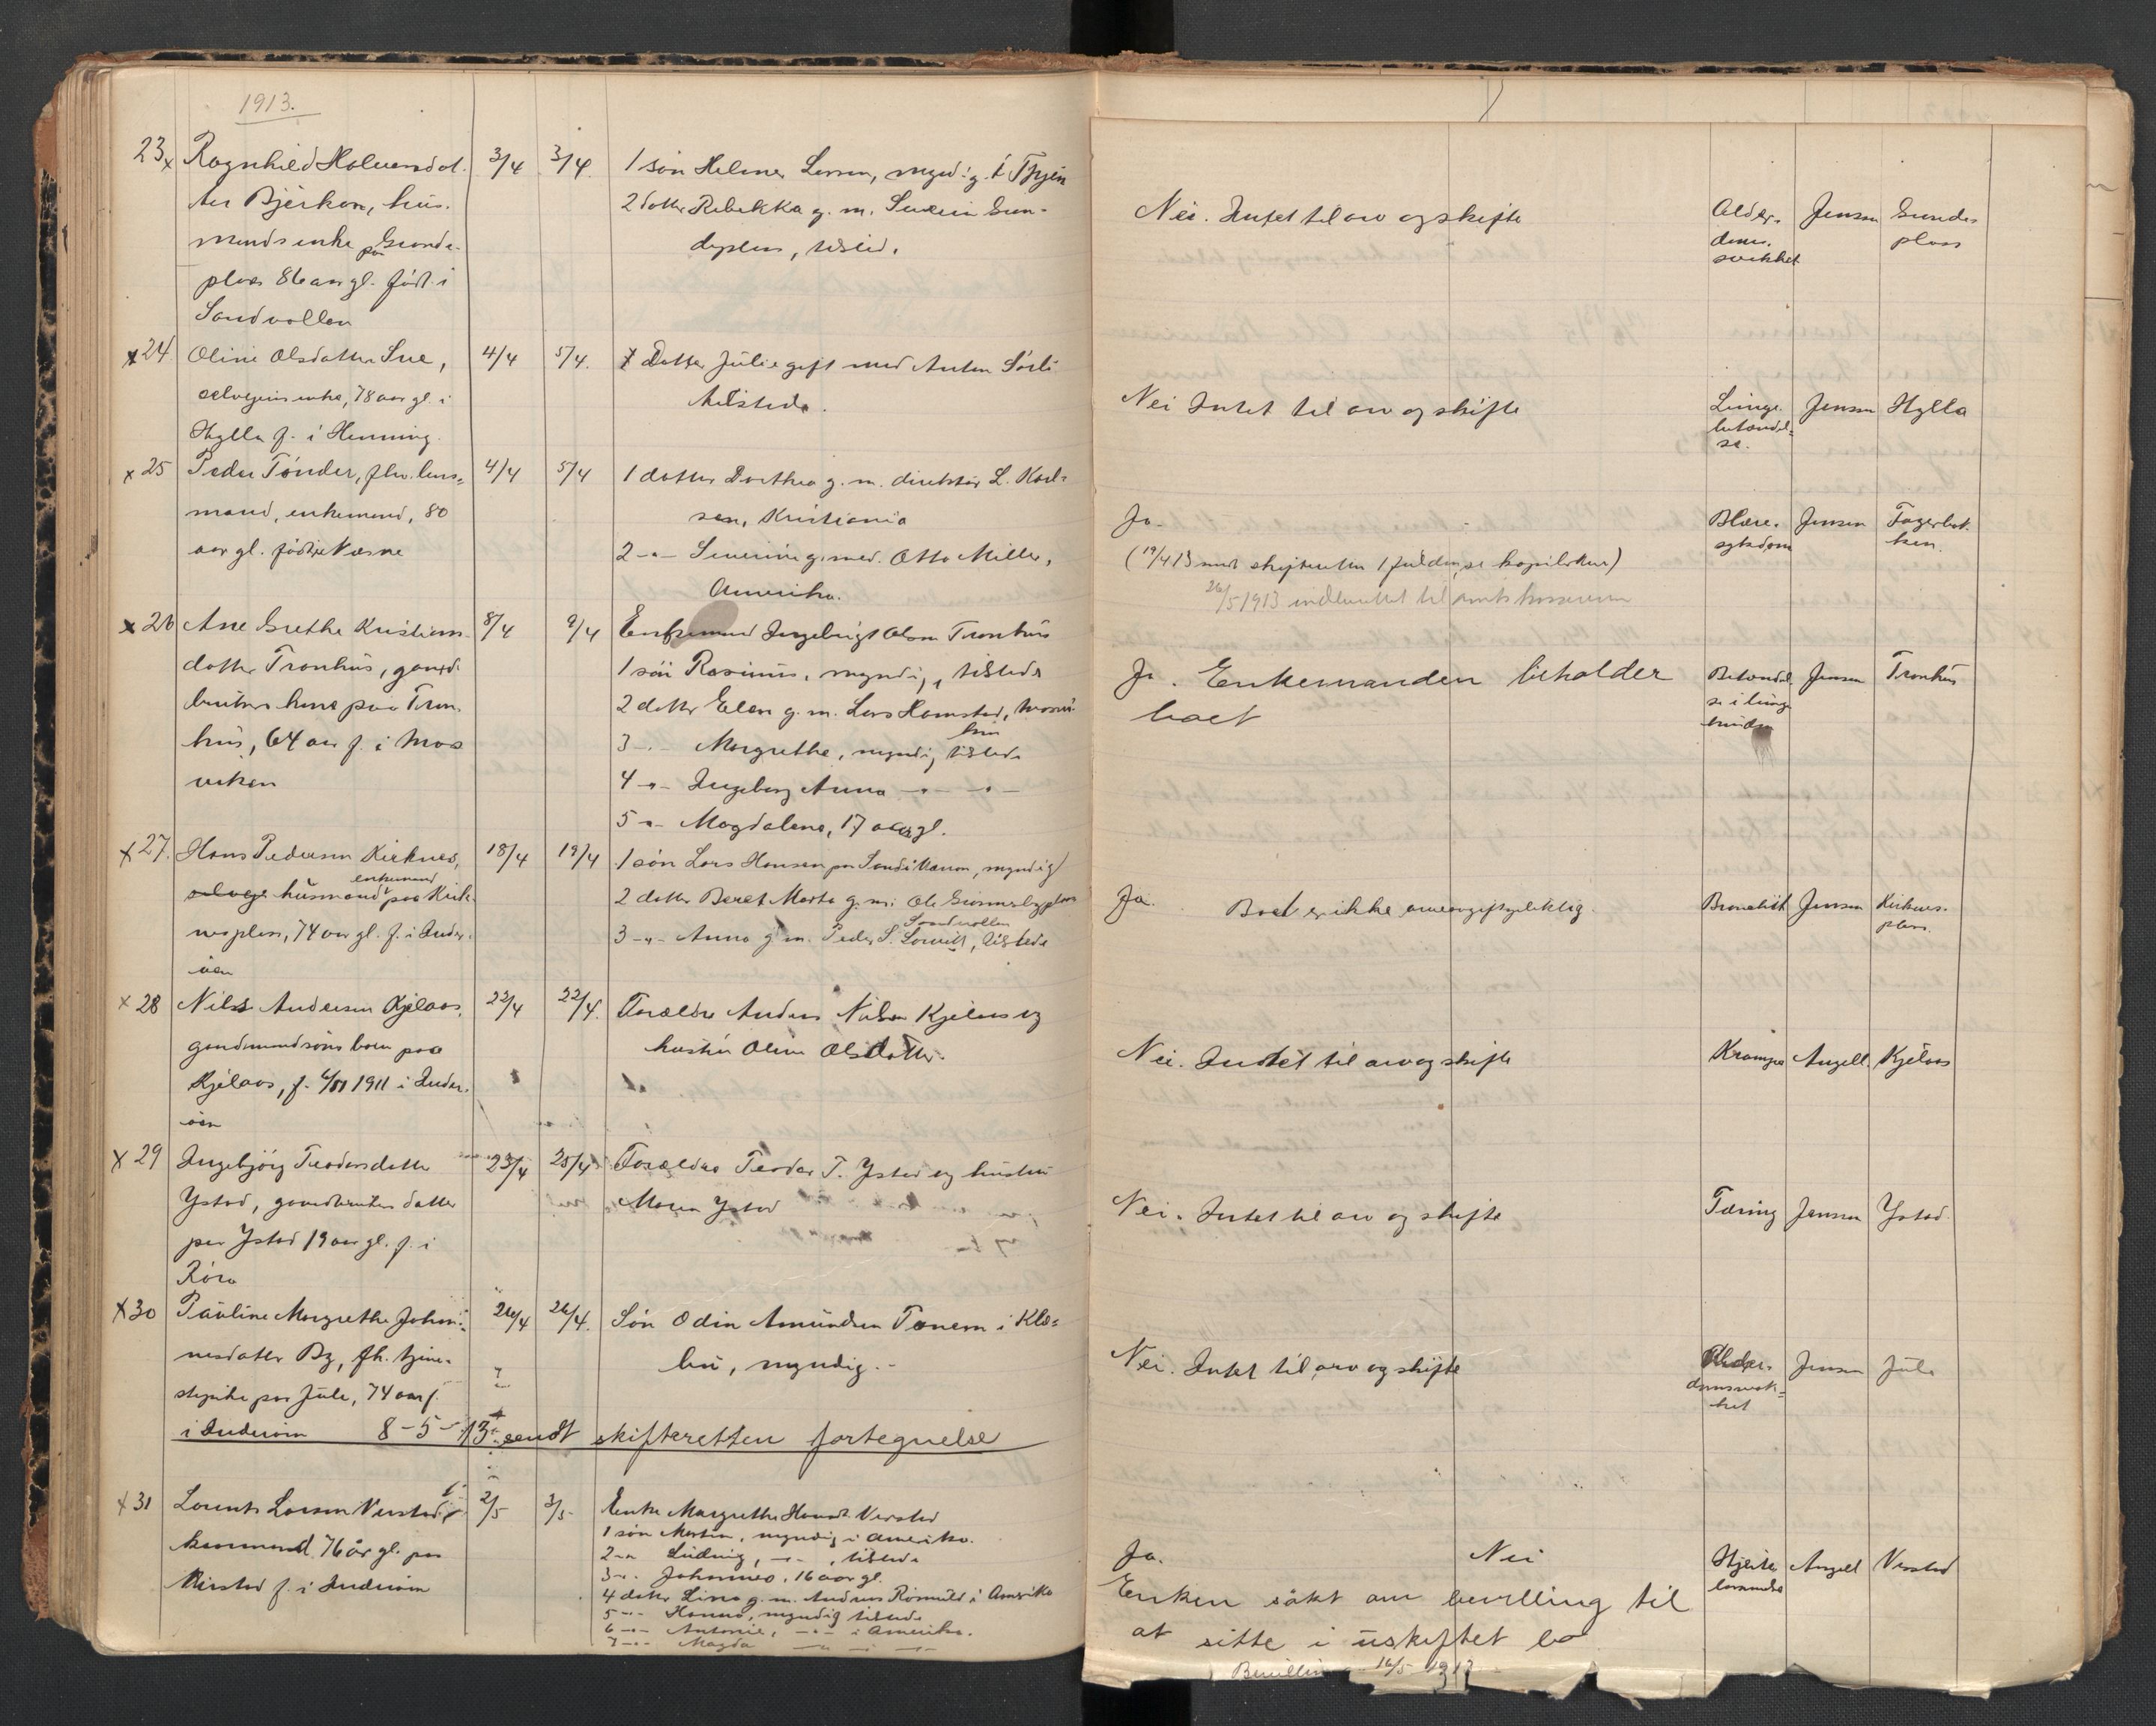 1913.
23 x Ragnhild Halvorsdat-
ter Bjerkan, hus-
mandsenke paa Grande-
plas 86 aar gl. født i
Sandvollen
3/4 3/4.
1 søn Helmer Larsen, myndig.
2 datter Rebekka g. m. Severin Gran-
deplass, tilsted.
Nei. Intet til arv og skifte
Alder-
doms-
svekket
Jensen
plass
x 24. Oline Olsdatter Sue,
selveiers enke, 78 aar gl. i
Hylla f. i Henning.
4/4 5/4.
1 Datter Julie gift med Anton Sørli
tilstede.
Nei Intet til arv og skifte
Lunge-
betændel-
se.
Jensen Hylla
x 25 Peder Tønder, fhv. lens-
mand, enkemand, 80
aar gl. født i Værne
4/4 5/4
1 datter Dorthea g. m. direktør L. Karl-
sen, Kristiania
2 -"- Severine g. med. Otto Miller,
Amerika.
Ja.
(19/4 13 sendt skifteretten 1 fuldm, se kopiboken)
26/5 1913 indberettet til amtskasseren
Blære-
sykdom
Jensen Fagerbak-
ken.
x 26 Ane Grethe Kristians-
datter Tronhus, gaard-
brukers kone paa Tron-
hus, 64 aar f. i Mos
viken
8/4 9/4
Enkemand Ingebrigt Olsen Tronhus
1 søn Rasinus, myndig, tilstede
2 datter Elen g. m. Lars Hamstad, Mosvi-
ken
3 -"- Margrethe, myndig tilstede
4 -"- Ingeborg Anna -"- -"-
5 -"- Magdalena, 17 aar gl.
Ja. Enkemanden beholder
boet
Betændel-
se i lunge
hinden
Jensen Tronhus
x 27. Hans Pedersen Kirknes,
enkemand
selveie husmand paa Kirk-
nesplass, 74 aar gl. f. i Inder-
øen
18/4 19/4
1 søn Lars Hansen paa Sand i Værran, myndig
2 datter Beret Marta g. m. Ole Grønnesbyplass
Sandvollen
3 -"- Anna g. m. Peder S. Lorvik, tilstede
Ja. Boet er ikke arveavgiftspliktig.
Bronchit Jensen Kirknes-
plass.
x 28 Nils Andersen Kjelaas,
gaardmandsøns barn paa
Kjelaas, f. 6/11 1911 i Inder-
øen
22/4 22/4.
Forældre Anders Nilsen Kjelaas og
hustru Oline Olsdatter.
Nei. Indtet til arv og skifte
Krampe Angell. Kjelaas
x 29 Ingebjørg Teodorsdatter
Ystad, gaardbrukers datter
paa Ystad 19 aar gl. f. i
Røra
23/4 25/4
Forældre Teodor T. Ystad og hustru
Maren Ystad
Nei. Intet til arv og skifte
Tæring Jensen Ystad
x 30 Pauline Margrethe Johan-
nesdatter By, fh. tjene-
stepike paa Jule, 74 aar f.
i Inderøen
26/4 26/4.
Søn Odin Amundsen Tanem i Klæ-
bu, myndig.-
Nei. Intet til arv og skifte
Alder-
domssvak-
het
Jensen Jule
8-5-13 sendt skifteretten fortegnelse
x 31 Lorents Larsen Verstad,
kaarmand 76 år gl. paa
Verstad f. i Inderøen
2/5 3/5
Enke Margrethe Hansd. Verstad
1 søn Martin, myndig i Amerika.
2 -"- Ludvig, -"-, tilstede
3 -"- Johannes, 16 aar gl.
4 datter Lina g. m. Andreas Rømuld i Amerika
5 -"- Hanna, myndig tilstede
6 -"- Antonie, -"- i Amerika.
7 -"- Magda -"- -"-
Ja. Nei
Enken søkt om bevilling til
at sitte i uskiftet bo
Bevilling 16/5 1913
Hjerte
lammelse
Angell Verstad